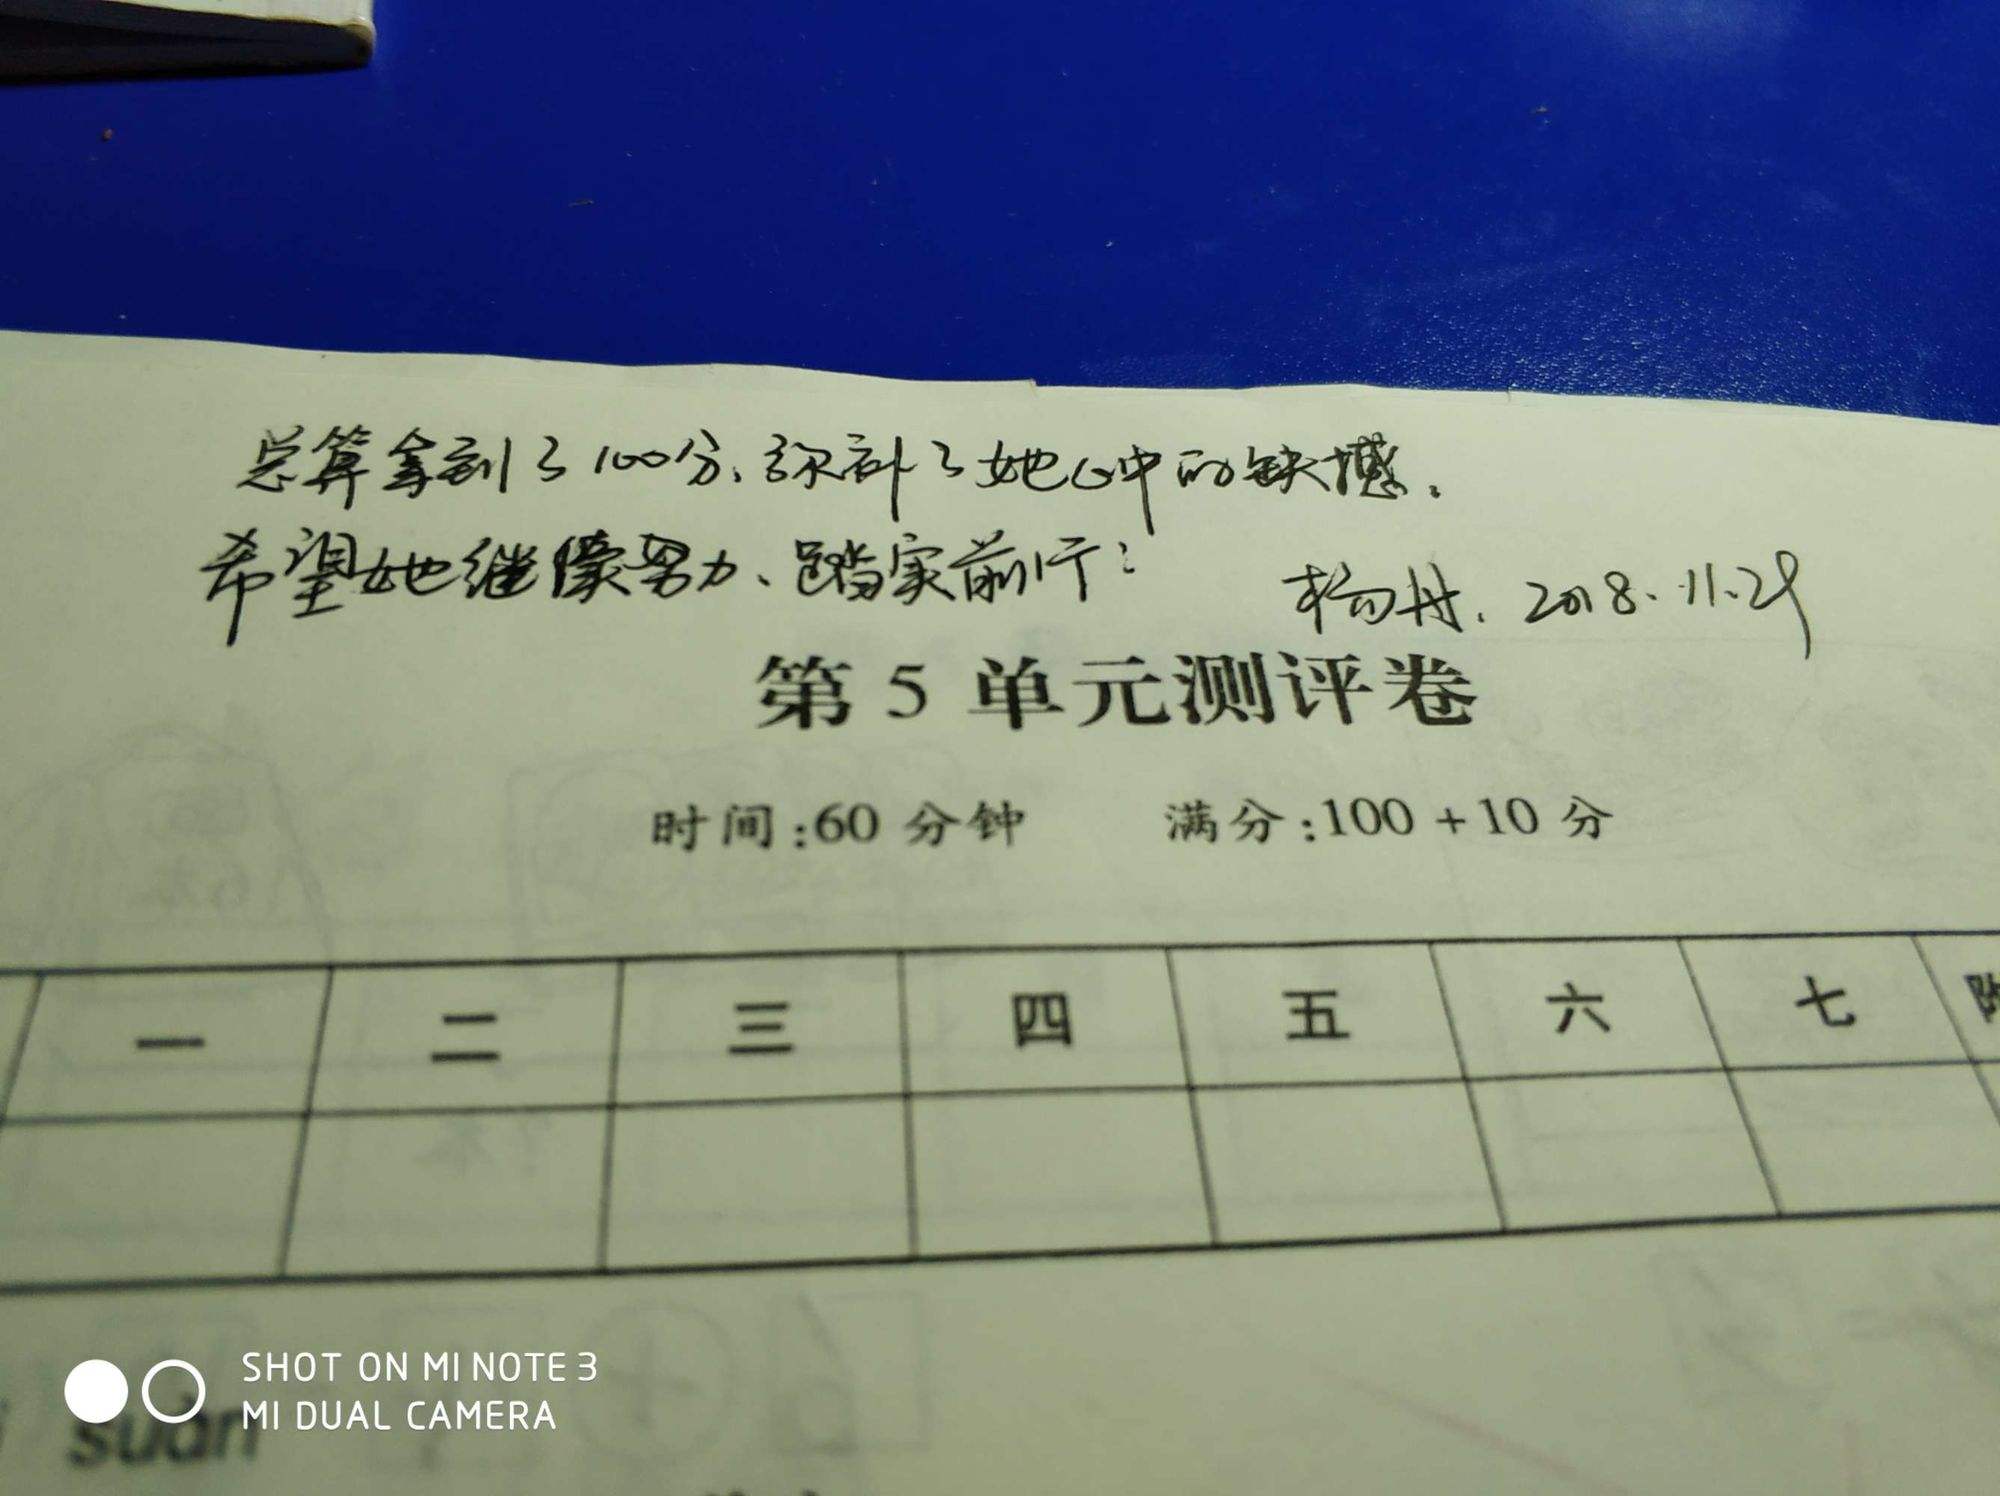 总算拿到了100分、弥补了她心中的缺憾。
希望她继续努力、踏实前行！
杨丹. 2018.11.29
第5单元测评卷
时间:60分钟 满分:100+10分
一 二 三 四 五 六 七
suàn
SHOT ON MI NOTE 3
MI DUAL CAMERA